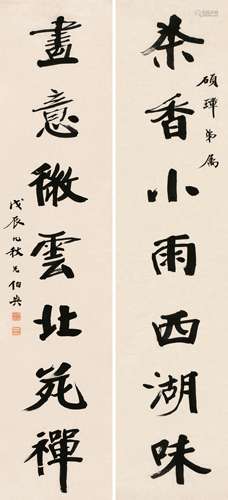 茶香小雨西湖味
碩弟属
畫意微雲北苑禪
戊辰九秋兄伯英